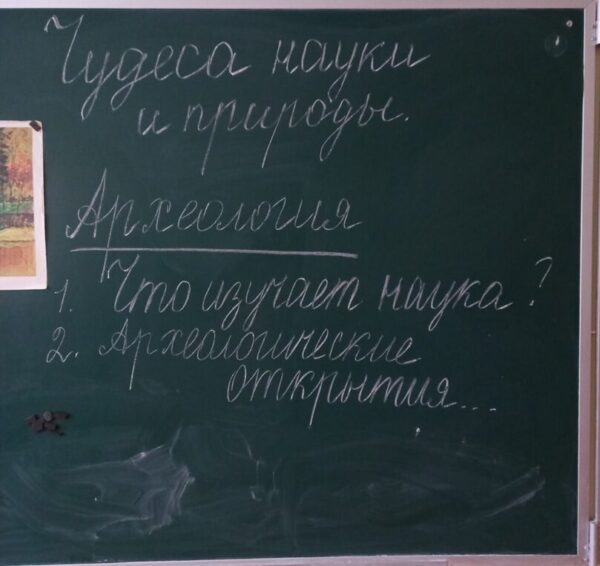 Чудеса науки
и природы.
Археология
1. Что изучает наука?
2. Археологические
открытия...